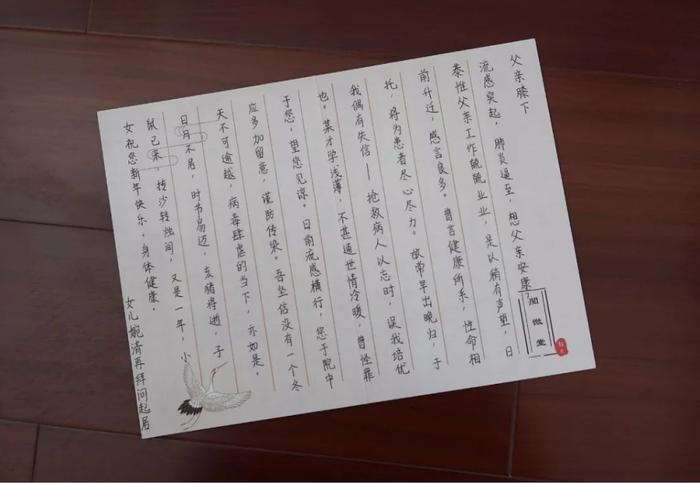 父亲膝下
流感突起，肺炎逼至，想父亲安康，
恭惟父亲工作兢兢业业，是以稍有声望，日
前升迁，感言良多。昔言健康所系，性命相
托，将为患者尽心尽力。故常早出晚归，于
我偶有失信——抢救病人以忘时，误我培优
也。某才学浅薄，不甚通世情冷暖，曾怪罪
于您，望您见谅。日前流感横行，您于院中
应多加留意，谨防传染。吾坚信没有一个冬
天不可逾越，病毒肆虐的当下，亦如是。
日月不居，时节易迈，亥猪将逝，子
鼠已来，转沙转烛间，又是一年，小
女祝您新年快乐，身体健康。
女儿婉清再拜问起居
閱微堂